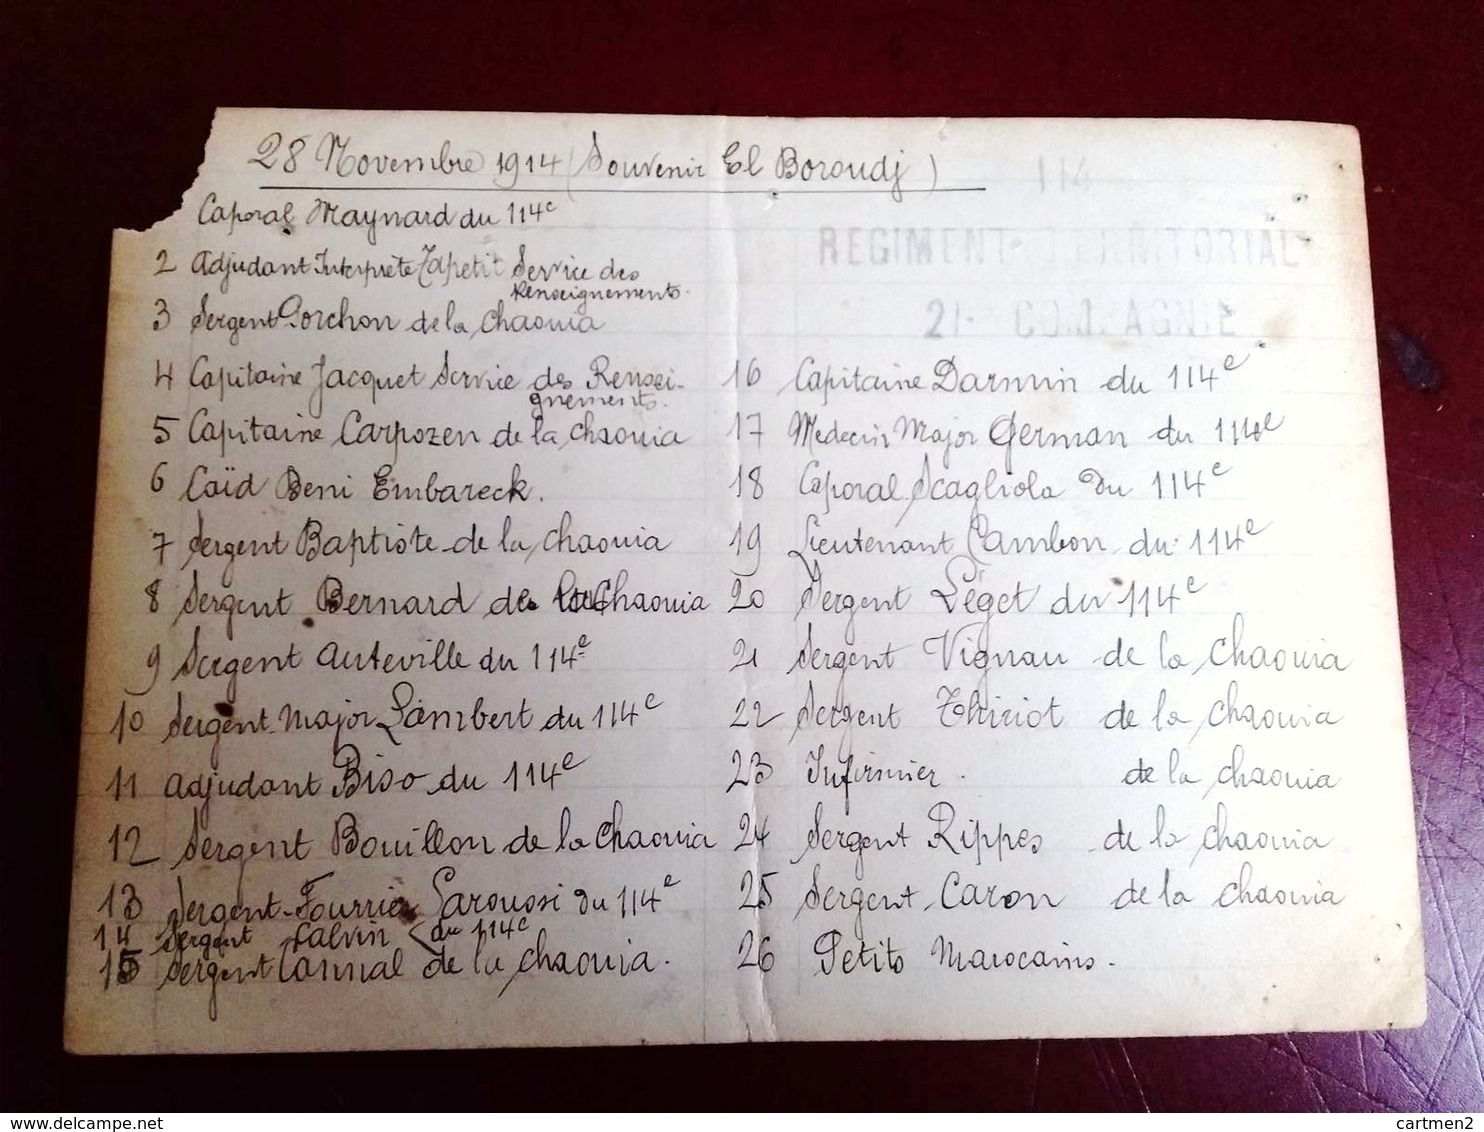 28 Novembre 1914 (Souvenir El Boroudj)
Caporal Maynard du 114e
2 Adjudant Interprète Zapetit Service des
Renseignements.
3 Sergent Porchon de la Chaouia
4 Capitaine Jacquet Service des Rensei-
gnements.
5 Capitaine Carpozen de la Chaouia
6 Caïd Beni Embareck.
7 Sergent Baptiste de la Chaouia
8 Sergent Bernard de la Chaouia
9 Sergent Auteville du 114e
10 Sergent-Major Lambert du 114e
11 Adjudant Biso du 114e
12 Sergent Bouillon de la Chaouia
13 Sergent-Fourrier Larouosi du 114e
14 Sergent Calvin du 114e
15 Sergent Cannal de la Chaouia.
114
REGIMENT TERRITORIAL
21e COMPAGNIE
16 Capitaine Darmin du 114e
17 Medecin Major German du 114e
18 Caporal Scagliola du 114e
19 Lieutenant Cambon du 114e
20 Sergent Léget du 114e
21 Sergent Vignau de la Chaouia
22 Sergent Thiriot de la Chaouia
23 Infirmier. de la Chaouia
24 Sergent Rippes de la Chaouia
25 Sergent Caron de la Chaouia
26 Petits Marocains.
www.delcampe.net
cartmen2